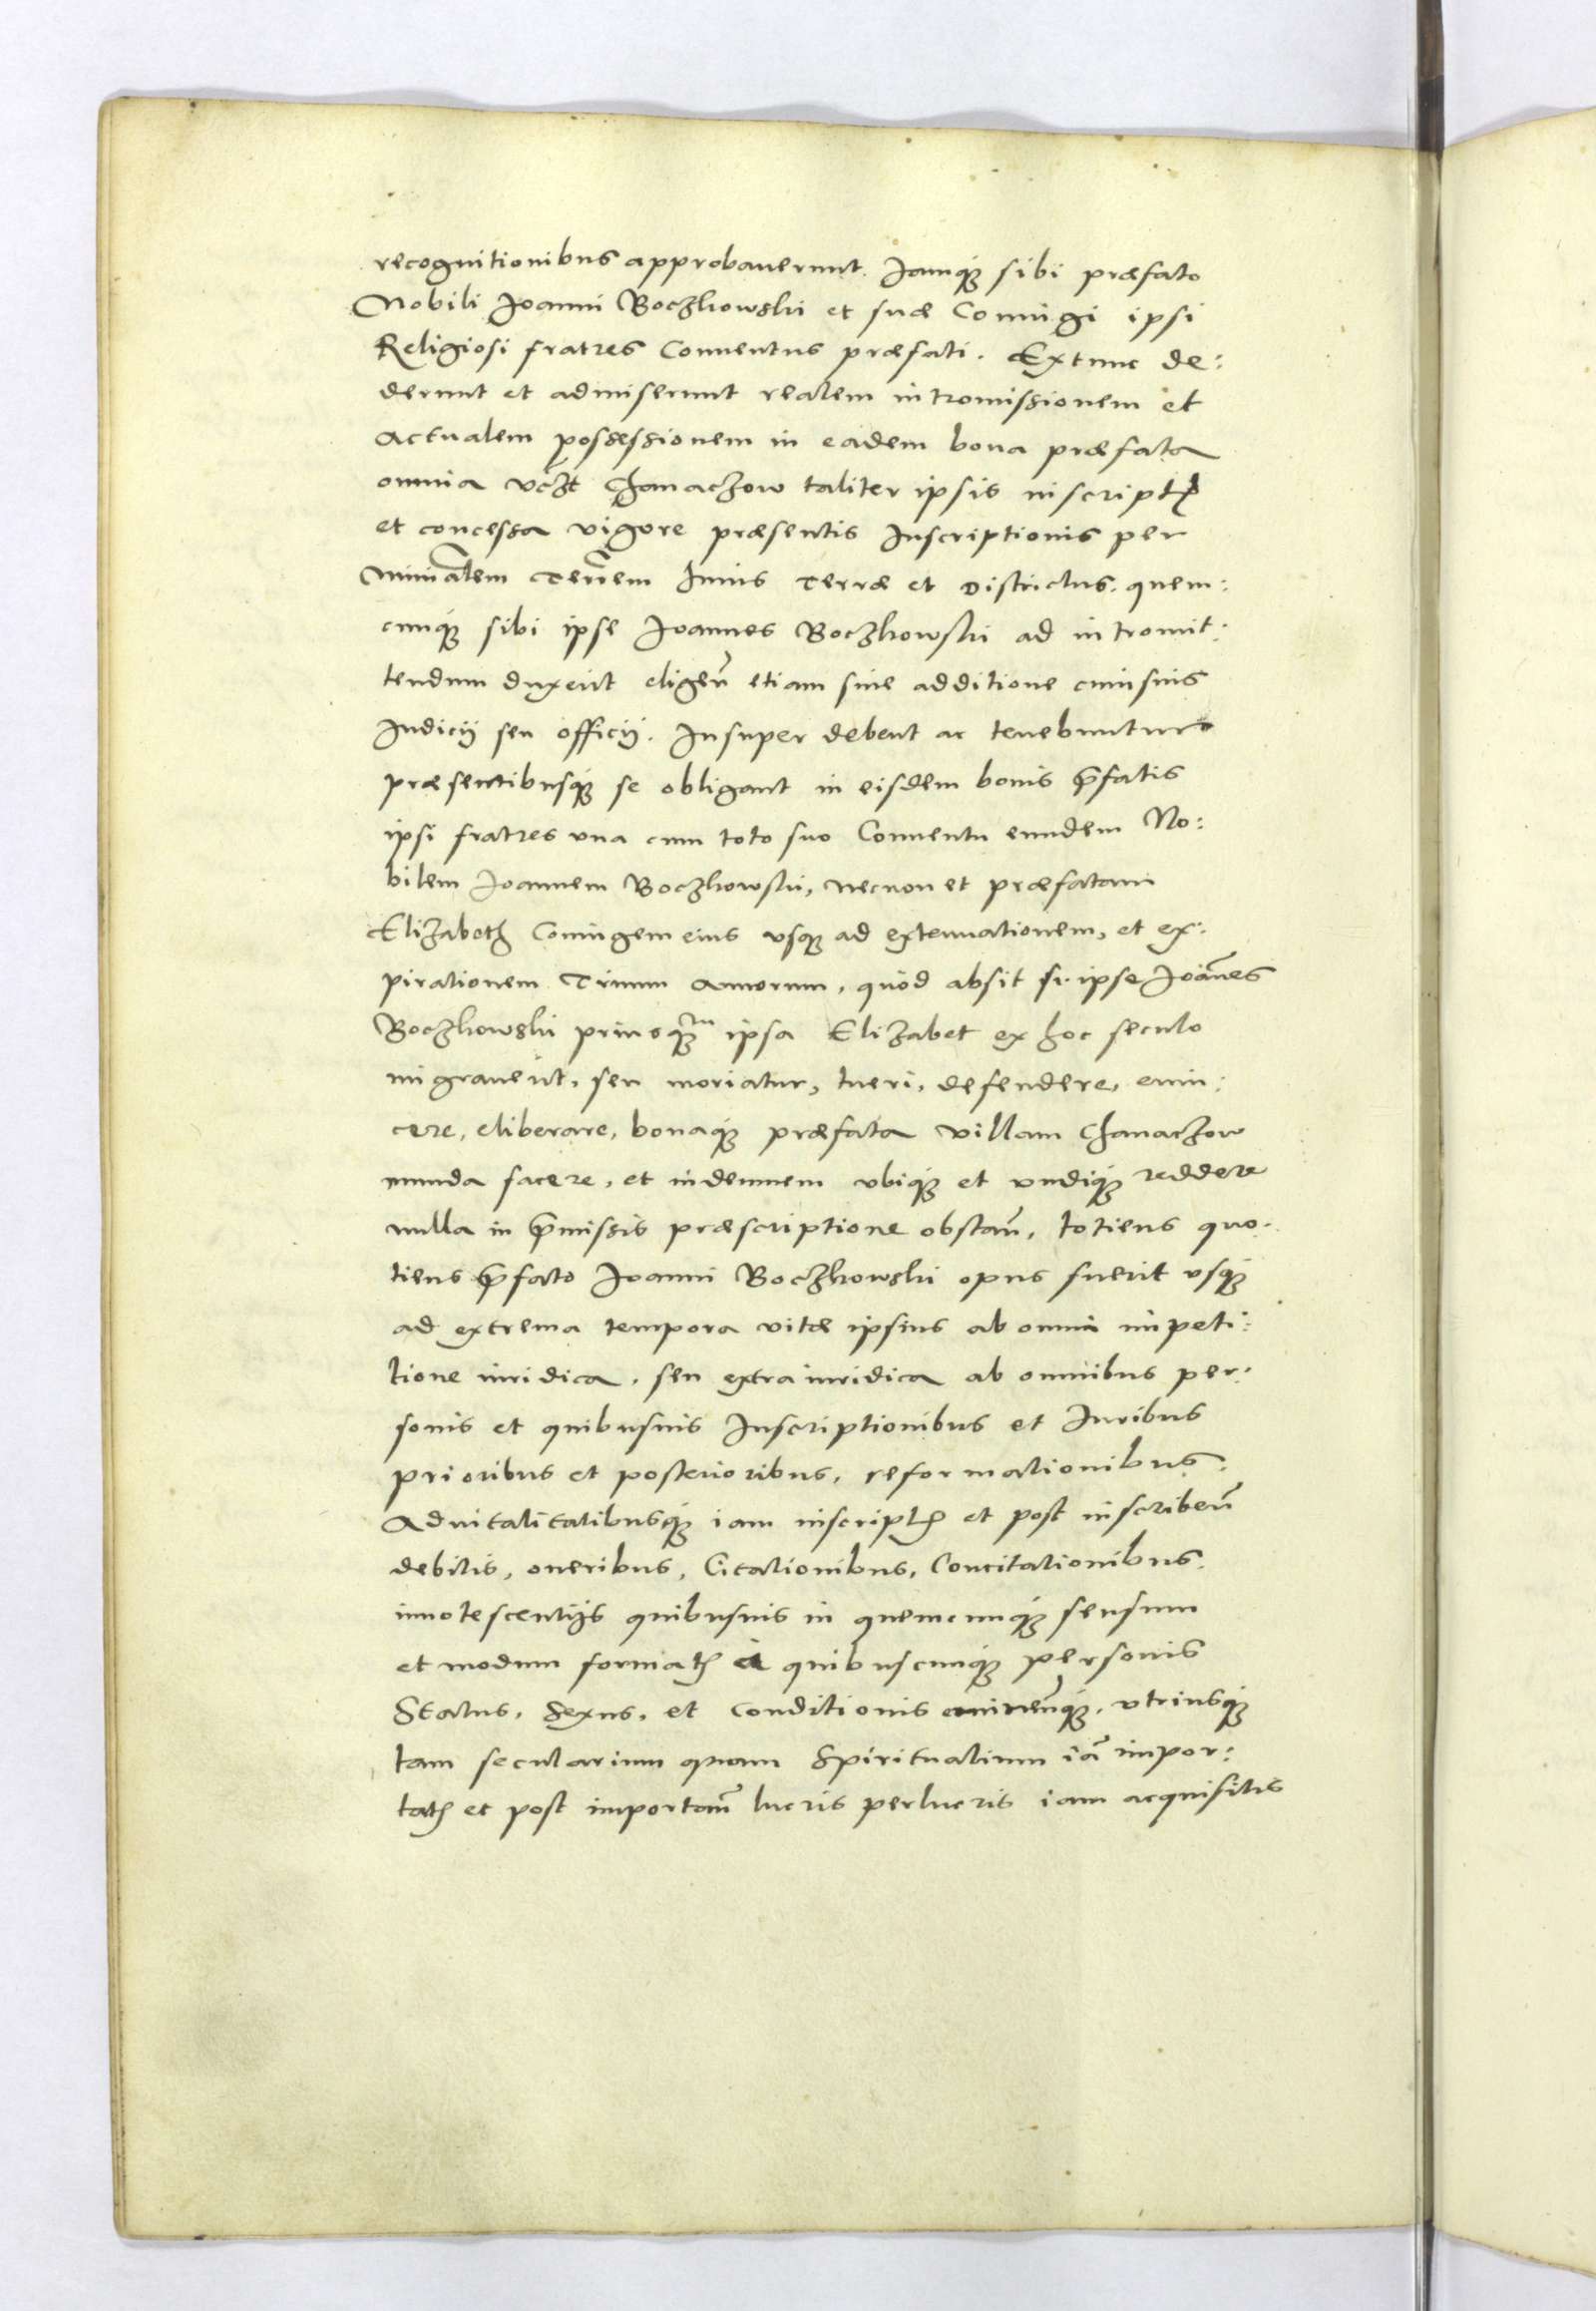 recognitionibus approbauerunt. Iamq; sibi præfato
Nobili Ioanni Boczkowski et suæ Coniugi ipsi
Religiosi fratres Conuentus præfati. Extunc de:
derunt et admiserunt realem intromissionem et
actualem possessionem in eadem bona præfata
omnia vczt Chanaczow taliter ipsis inscripta
et concessa vigore præsentis Inscriptionis per
Miniãlem Terrẽm huius Terræ et Districtus. quem:
cunq; sibi ipse Ioannes Boczkowski ad intromit:
tendum duxerit eligeñ etiam sine additione cuiusuis
Iudicij seu officij. Insuper debent ac tenebuntur
præsentibusq; se obligant in eisdem bonis p̃fatis
ipsi fratres vna cum toto suo Conuentu eundem No:
bilem Ioannem Boczkowski, necnon et præfatam
Elizabeth Coniugem eius vsq; ad extenuationem, et ex:
pirationem Trium annorum, quod absit si ipse Ioãnes
Boczkowski priusq;m ipsa Elizabet ex hoc seculo
migrauerit, seu moriatur, tueri, defendere, euin:
cere, eliberare, bonaq; præfata villam Chanaczow
munda facere, et indemnem vbiq; et vndiq; reddere
nulla in p̃missis præscriptione obstañ, totiens quo:
tiens p̃fato Ioanni Boczkowski opus fuerit vsq;
ad extrema tempora vitæ ipsius ab omni impeti:
tione iuridica, seu extraiuridica ab omnibus per:
sonis et quibusuis Inscriptionibus et Iuribus
prioribus et posterioribus, reformationibus,
Aduitalitatibusq; iam inscript; et post inscribeñ
debitis, oneribus, Citationibus, Concitationibus,
innotescentijs quibusuis in quemcunq; sensum
et modum format; à quibuscunq; personis
Status, sexus, et conditionis cuiuscunq;, vtriusq;
tam secularium quam Spiritualium iã impor:
tat; et post importañ lucris perlucris iam acquisitis